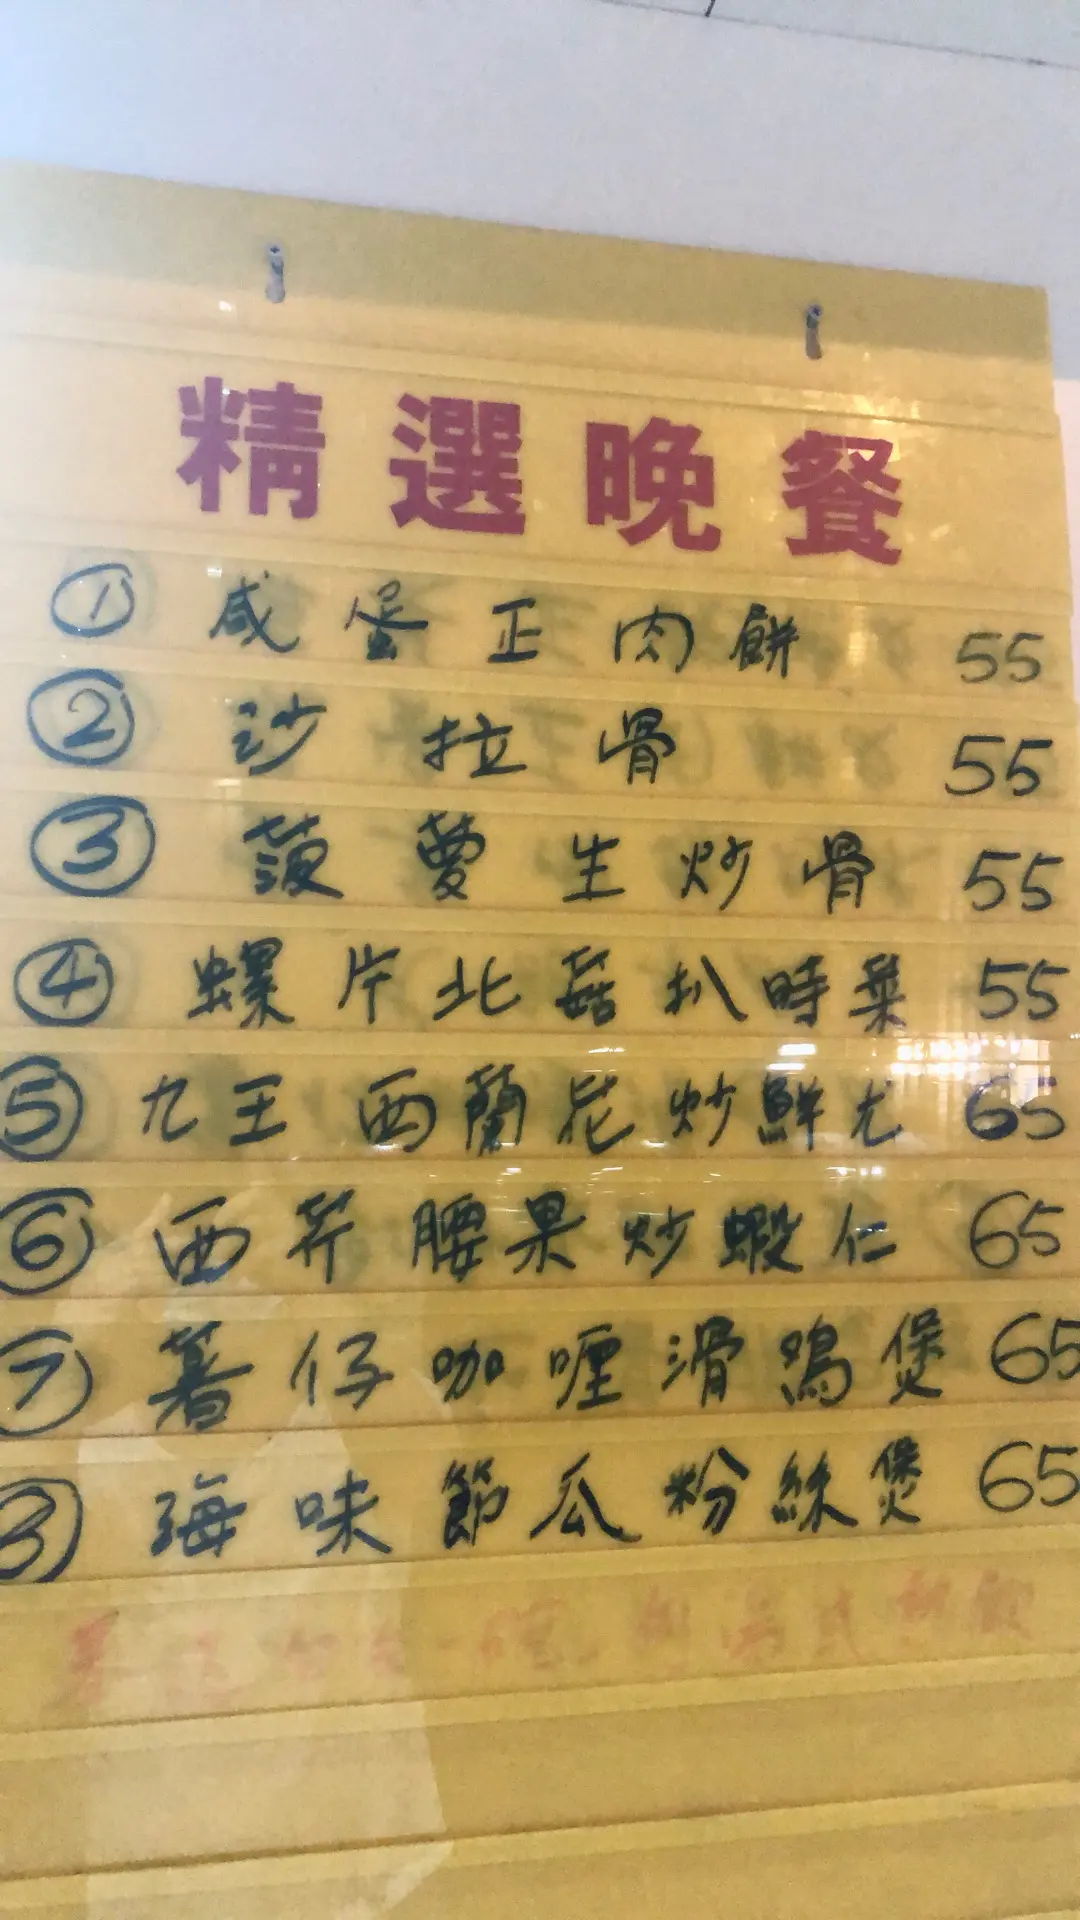 精選晚餐
① 咸蛋正肉餅 55
② 沙拉骨 55
③ 菠蘿生炒骨 55
④ 螺片北菇扒時菜 55
⑤ 九王西蘭花炒鮮尤 65
⑥ 西芹腰果炒蝦仁 65
⑦ 薯仔咖喱滑鸡煲 65
⑧ 海味節瓜粉絲煲 65